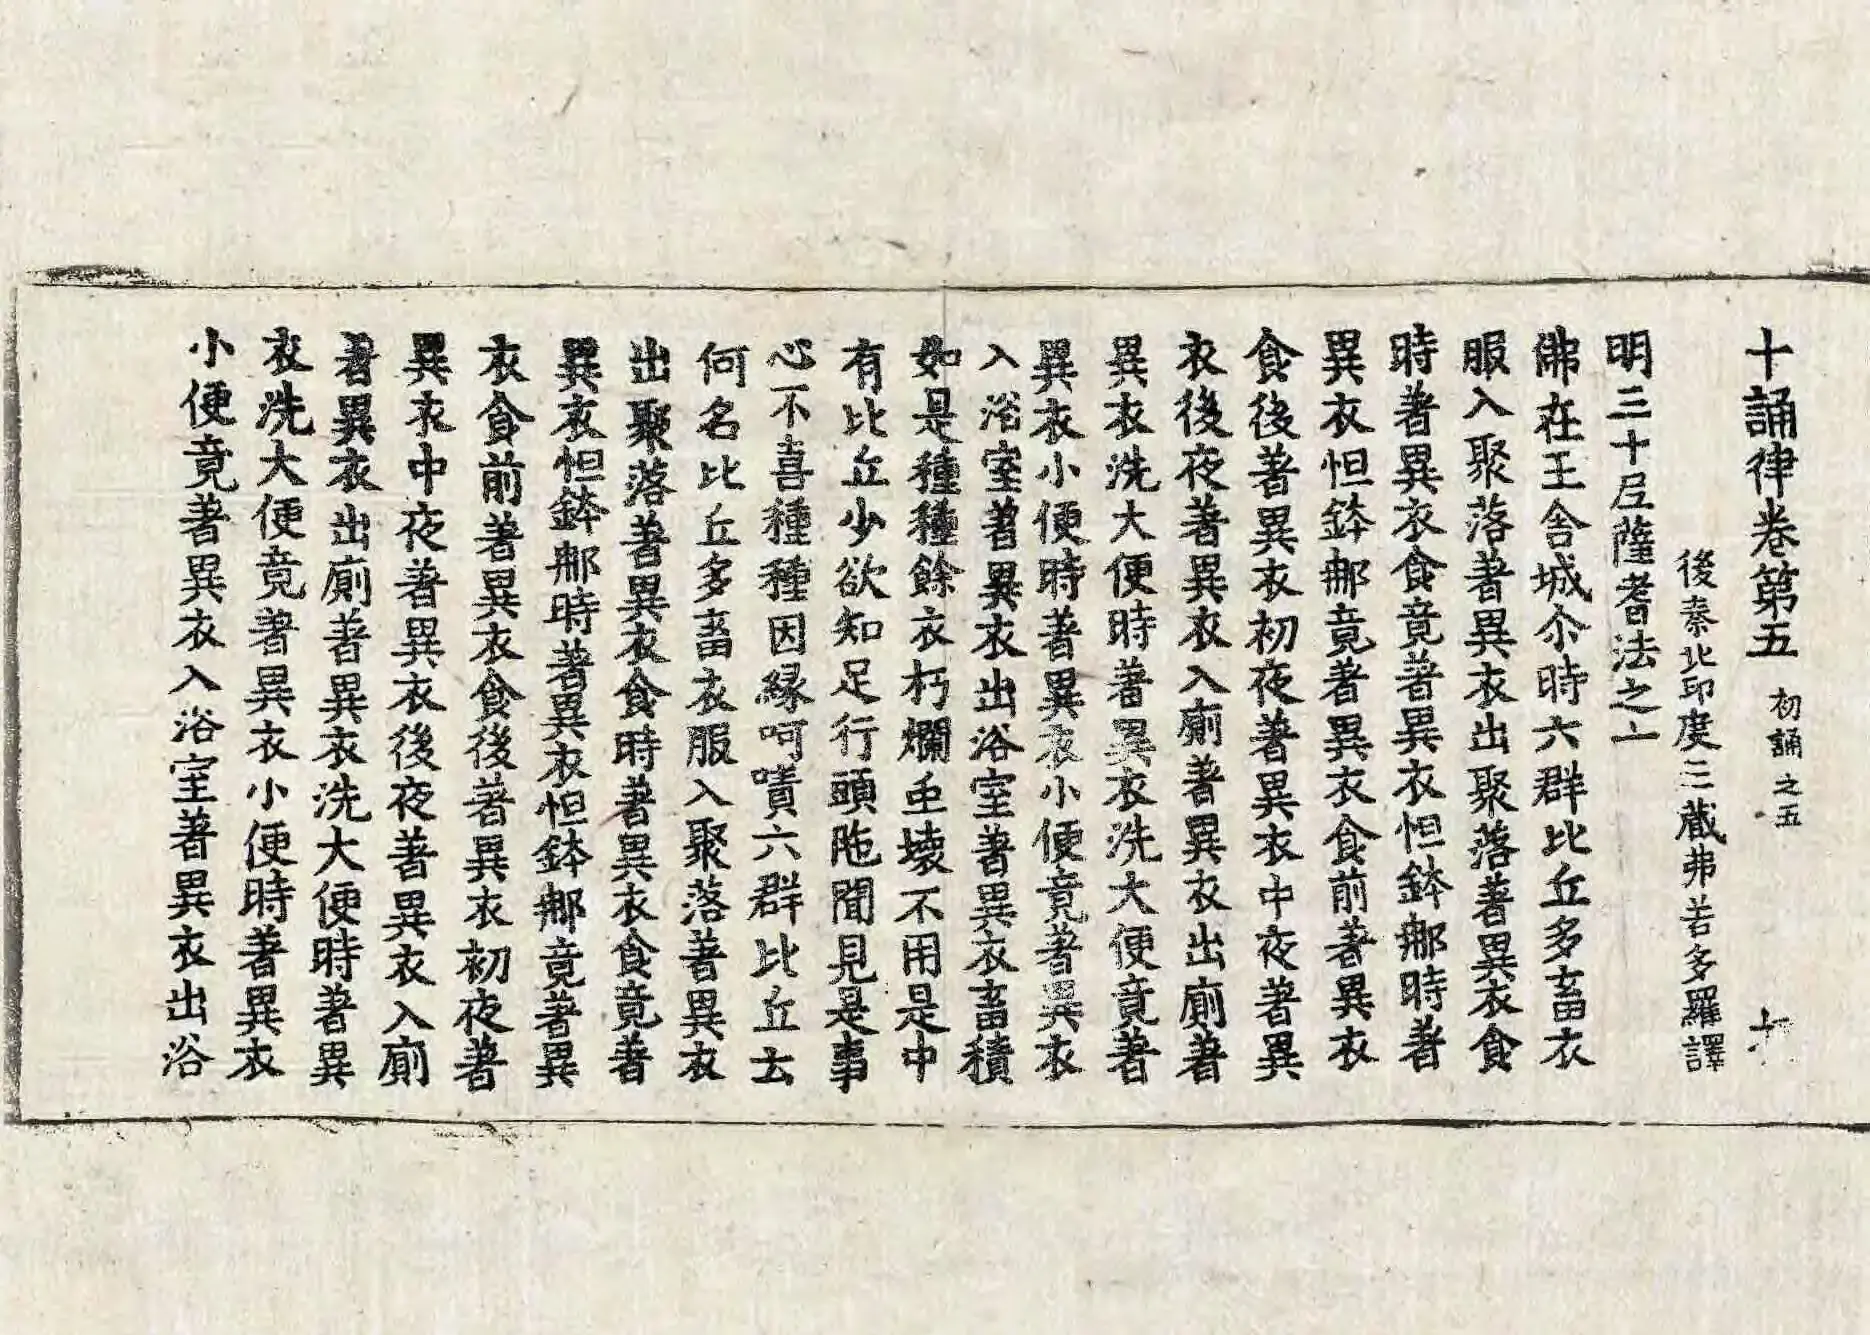 十誦律卷第五 初誦之五
後秦北印度三藏弗若多羅譯
明三十尼薩耆法之一
佛在王舍城尒時六群比丘多畜衣
服入聚落著異衣出聚落著異衣食
時著異衣食竟著異衣怛鉢那時著
異衣怛鉢那竟著異衣食前著異衣
食後著異衣初夜著異衣中夜著異
衣後夜著異衣入廁著異衣出廁著
異衣洗大便時著異衣洗大便竟著
異衣小便時著異衣小便竟著異衣
入浴室著異衣出浴室著異衣畜積
如是種種餘衣朽爛虫壞不用是中
有比丘少欲知足行頭陁聞見是事
心不喜種種因緣呵嘖六群比丘云
何名比丘多畜衣服入聚落著異衣
出聚落著異衣食時著異衣食竟著
異衣怛鉢那時著異衣怛鉢那竟著異
衣食前著異衣食後著異衣初夜著
異衣中夜著異衣後夜著異衣入廁
著異衣出廁著異衣洗大便時著異
衣洗大便竟著異衣小便時著異衣
小便竟著異衣入浴室著異衣出浴